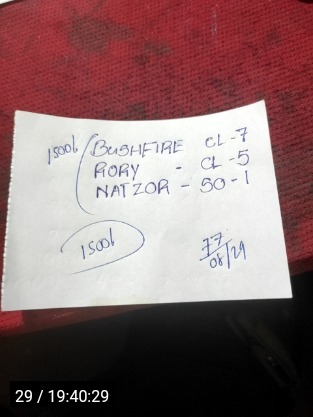 1500b
BUSHFIRE CL-7
RORY - CL-5
NATZOR - SO-1
1500b
77
08/29
29 / 19:40:29